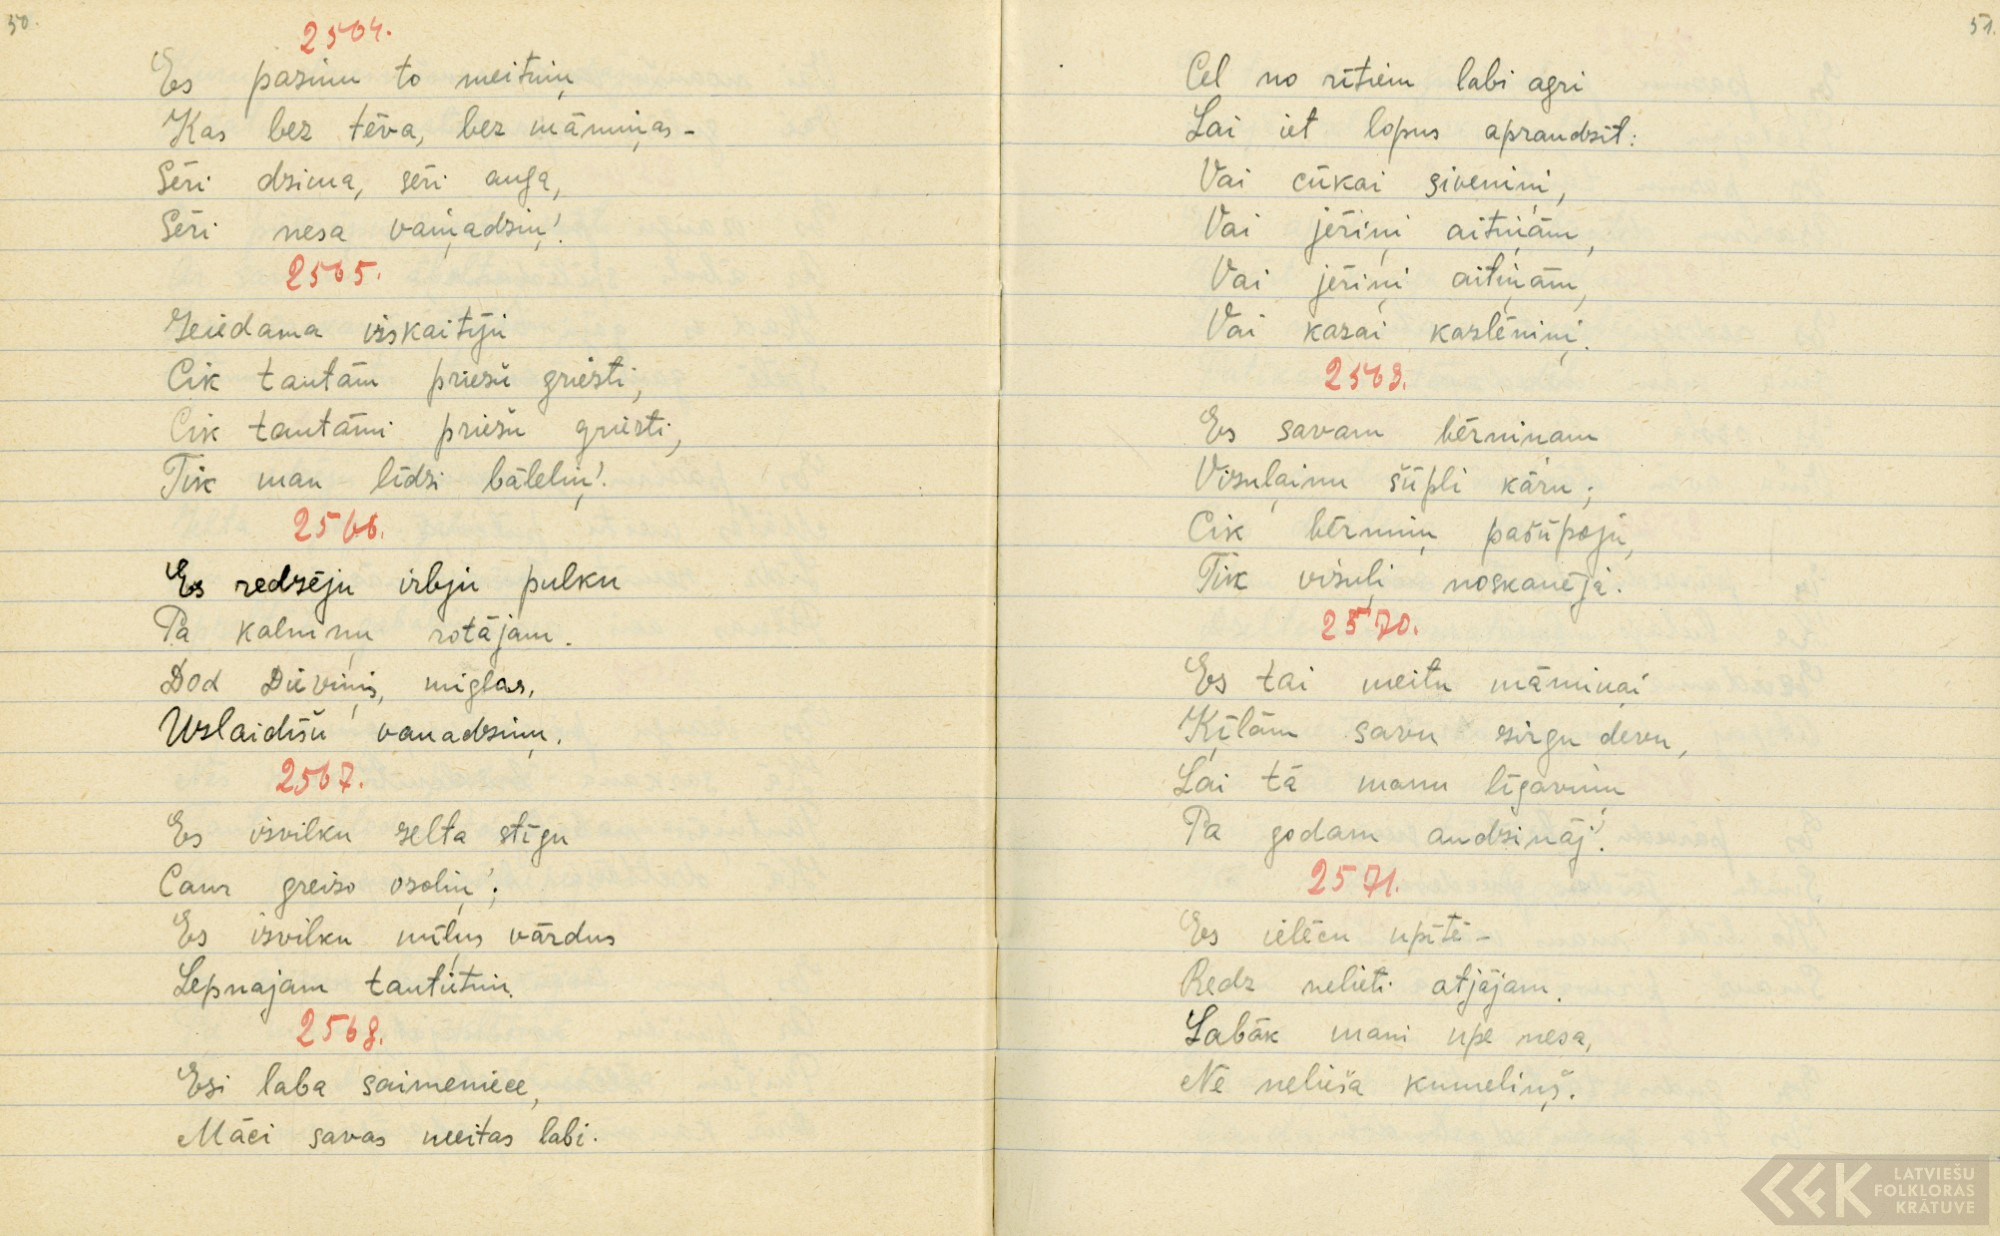 50.
2564.
Es pazinu to meitiņ
Kas bez tēva, bez māmiņas-
Sēri dzima, sēri auga,
Sēri nesa vaiņadziņ'.
2565.
Ieiedama izskaitīju
Cik tautām priežu griesti,
Cik tautāmi priežu griesti,
Tik man līdzi bāleliņ'.
2566.
Es redzēju irbju pulku
Pa kalniņu rotājam.
Dod Dieviņis, miglas,
Uzlaidīšu vanadziņu.
2567.
Es izvilku zelta stīgu
Caur greizo ozoliņ';
Es izvilku mīļus vārdus
Lepnajam tautietim.
2568.
Esi laba saimeniece,
Māci savas meitas labi.
51.
Cel no rītiem labi agri
Lai iet lopus apraudzīt:
Vai cūkai siveniņi,
Vai jēriņi aitiņām,
Vai jēriņi aitiņām,
Vai kazai kazlēniņi.
2569.
Es savam bērniņam
Vizuļainu šūpli kāru;
Cik bērniņu pašūpoju,
Tik vizuļi noskanēja.
2570.
Es tai meitu māmiņai
Ķīlām savu zirgu devu,
Lai tā manu līgaviņu
Pa godam audzināj'.
2571.
Es ielēcu upītē-
Redz nelieti atjājam.
Labāk mani upe nesa,
Ne nelieša kumeliņš.
LATVIEŠU
FOLKLORAS
KRĀTUVE